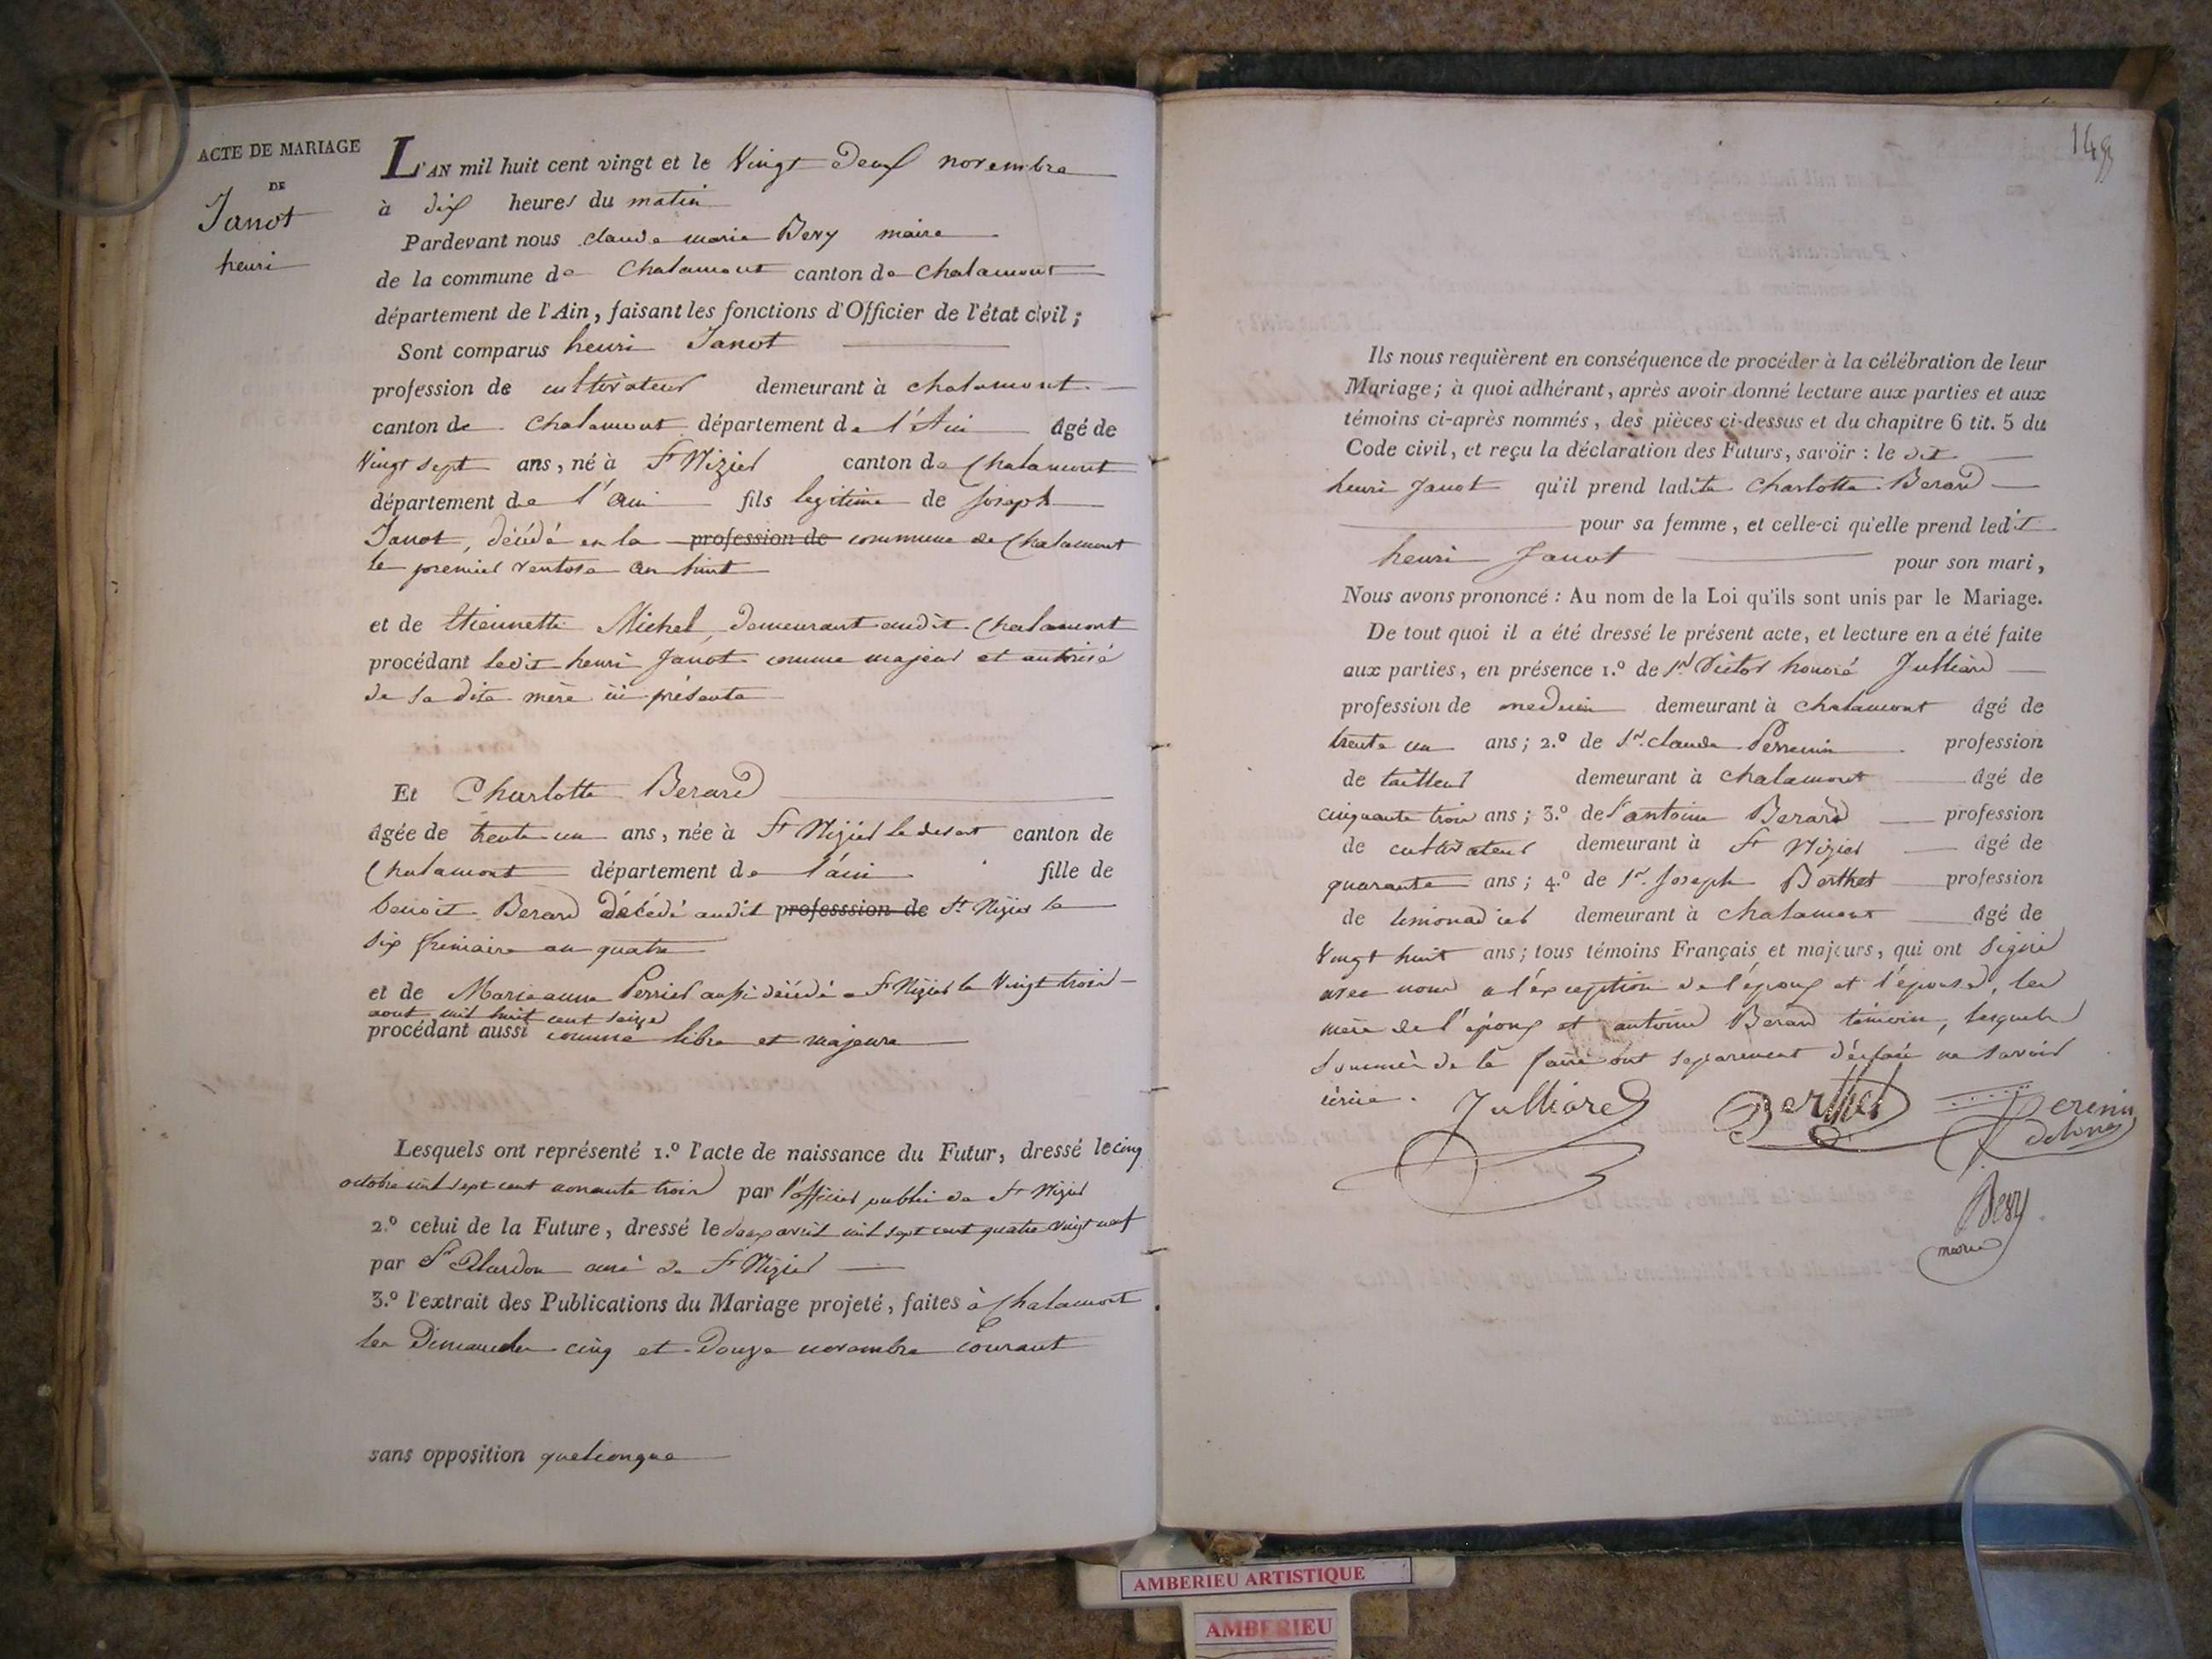 ACTE DE MARIAGE
DE
Janot
henri
L'AN mil huit cent vingt et le Vingt Deux novembre
à dix heures du matin
Pardevant nous claude marie Bevy maire
de la commune de Chalamont canton de Chalamont
département de l'Ain, faisant les fonctions d'Officier de l'état civil ;
Sont comparus henri Janot
profession de cultivateur demeurant à chalamont
canton de Chalamont département de l'Ain âgé de
Vingt sept ans, né à St Nizier canton de Chalamont
département de l'Ain fils legitime de Joseph
Janot, décédé en la profession de commune de Chalamont
le premier ventose an huit
et de Etiennette Michel, demeurant audit Chalamont
procédant ledit henri Janot comme majeur et autorisé
de sa dite mère ici présente
Et Charlotte Berard
âgée de trente un ans, née à St Nizier le desert canton de
Chalamont département de l'ain fille de
benoit Berard décédé audit professsion de St Nizier le
six frimaire an quatre
et de Marieanne Perrier aussi décédé a St Nizier le Vingt trois
aout mil huit cent seize
procédant aussi comme libre et majeure
Lesquels ont représenté 1.º l'acte de naissance du Futur, dressé le cinq
octobre mil sept cent nonante trois par l'officier public de St Nizier
2.º celui de la Future, dressé le deux avril mil sept cent quatre vingt neuf
par Sr curé de St Nizier
3.º l'extrait des Publications du Mariage projeté, faites à Chalamont
les Dimanches cinq et Douze novembre courant
sans opposition quelconque
149
Ils nous requièrent en conséquence de procéder à la célébration de leur
Mariage ; à quoi adhérant, après avoir donné lecture aux parties et aux
témoins ci-après nommés, des pièces ci-dessus et du chapitre 6 tit. 5 du
Code civil, et reçu la déclaration des Futurs, savoir : le dit
henri Janot qu'il prend ladite Charlotte Berard
pour sa femme, et celle-ci qu'elle prend ledit
henri Janot pour son mari,
Nous avons prononcé : Au nom de la Loi qu'ils sont unis par le Mariage.
De tout quoi il a été dressé le présent acte, et lecture en a été faite
aux parties, en présence 1.º de Sr Victor honoré Julliard
profession de medecin demeurant à chalamont âgé de
trente un ans ; 2.º de Sr. claude Perrenin profession
de tailleur demeurant à chalamont âgé de
cinquante trois ans ; 3.º de Sr antoine Berard profession
de cultivateur demeurant à St Nizier âgé de
quarante ans ; 4.º de Sr. Joseph Berthet profession
de limonadier demeurant à chalamont âgé de
Vingt huit ans ; tous témoins Français et majeurs, qui ont signé
avec nous a l'exception de l'époux et l'épouse, la
mère de l'époux et antoine Berard témoin, lesquels
sommés de le faire ont separement déclaré ne savoir
écrire.
Julliard
Berthet
Perenin
Bevy
maire
AMBERIEU ARTISTIQUE
AMBERIEU